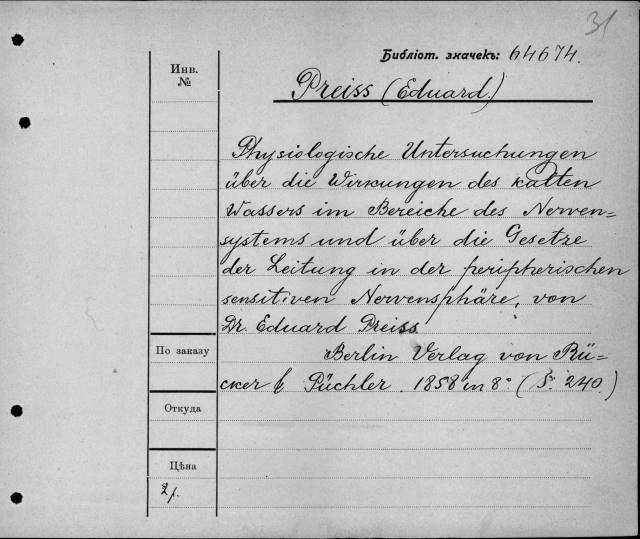 31
Библіот. значекъ: 64674.
Инв.
№
Preiss (Eduard.)
Physiologische Untersuchungen
über die Wirkungen des kalten
Wassers im Bereiche des Nerven-
systems und über die Gesetze
der Leitung in der peripherischen
sensitiven Nervensphäre, von
Dr. Eduard Preiss.
По заказу
Berlin Verlag von Rü-
cker & Püchler. 1858 in 8° (S. 240.)
Откуда
Цѣна
2р.